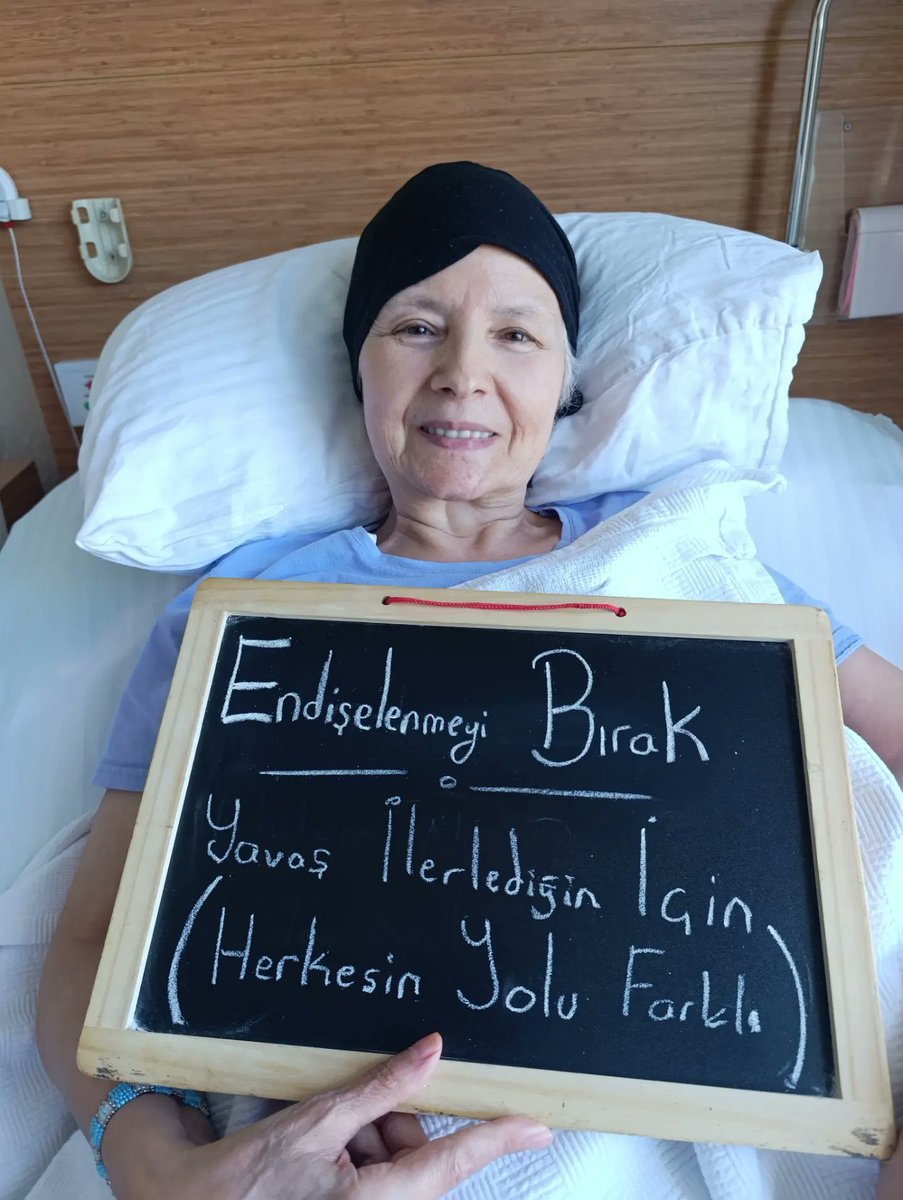 Endişelenmeyi Bırak
Yavaş İlerlediğin İçin
(Herkesin Yolu Farklı)